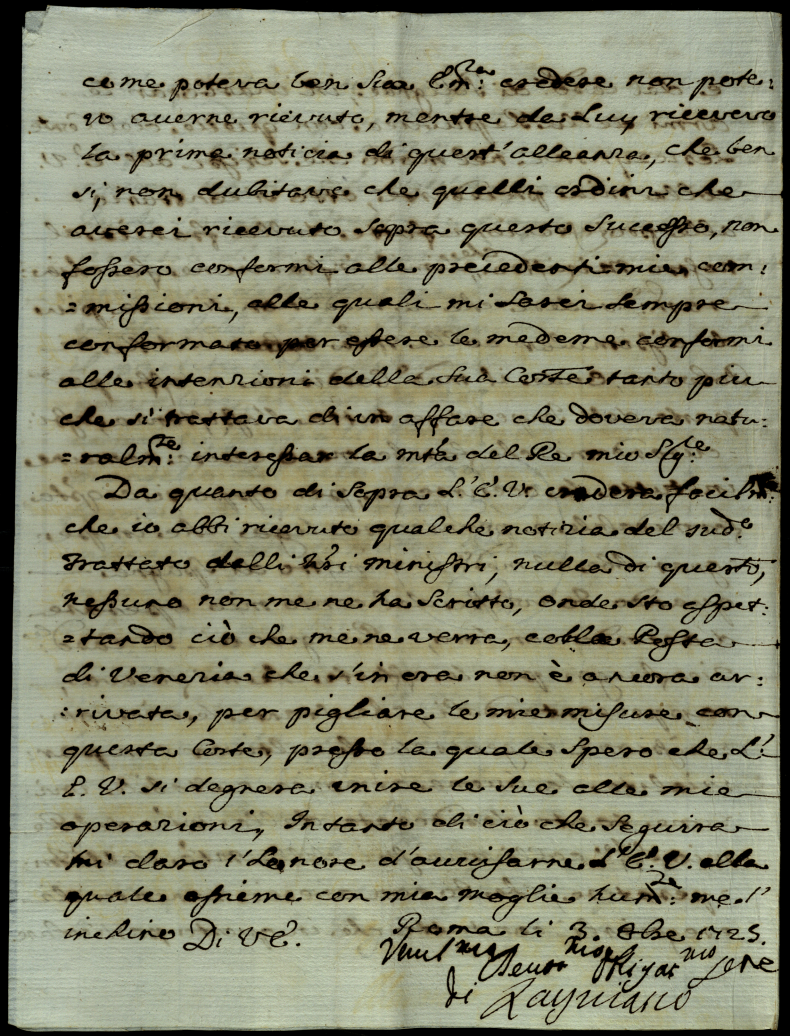 come poteva ben Sua Em.za credere non pote:
vo averne ricevuto, mentre da Luy ricevevo
la prima noticia di quest'alleanza, che ben
si, non dubitava che quelli ordini che
averei ricevuto sopra questo Successo, non
fossero conformi alle precedenti mie com:
=missioni, alle quali mi sarei sempre
conformato per essere le medeme conformi
alle intenzioni della Sua Corte tanto piu
che si trattava di un affare che doveva natu:
=ralm.te interessar la Mtà del Re mio Sig.re
Da quanto di sopra L'E.V. credera facilm.te
che io abbi ricevuto qualche notizia del sud.o
Trattato dalli nri ministri, nulla di questo,
nessuno non me ne ha scritto, onde sto aspet:
=tando ciò che me ne verra, colla Posta
di Venezia che s'in ora non è ancora ar:
:rivata, per pigliare le mie misure con
questa Corte, presso la quale spero che L'
E. V. si degnera unire le sue alle mie
operazioni, Intanto di ciò che seguirra
mi daro l'onore d'avvisarne L'E.V. alla
quale assieme con mia moglie hum.te me l'
inchino Di VE. Roma li 3. 1725.
di